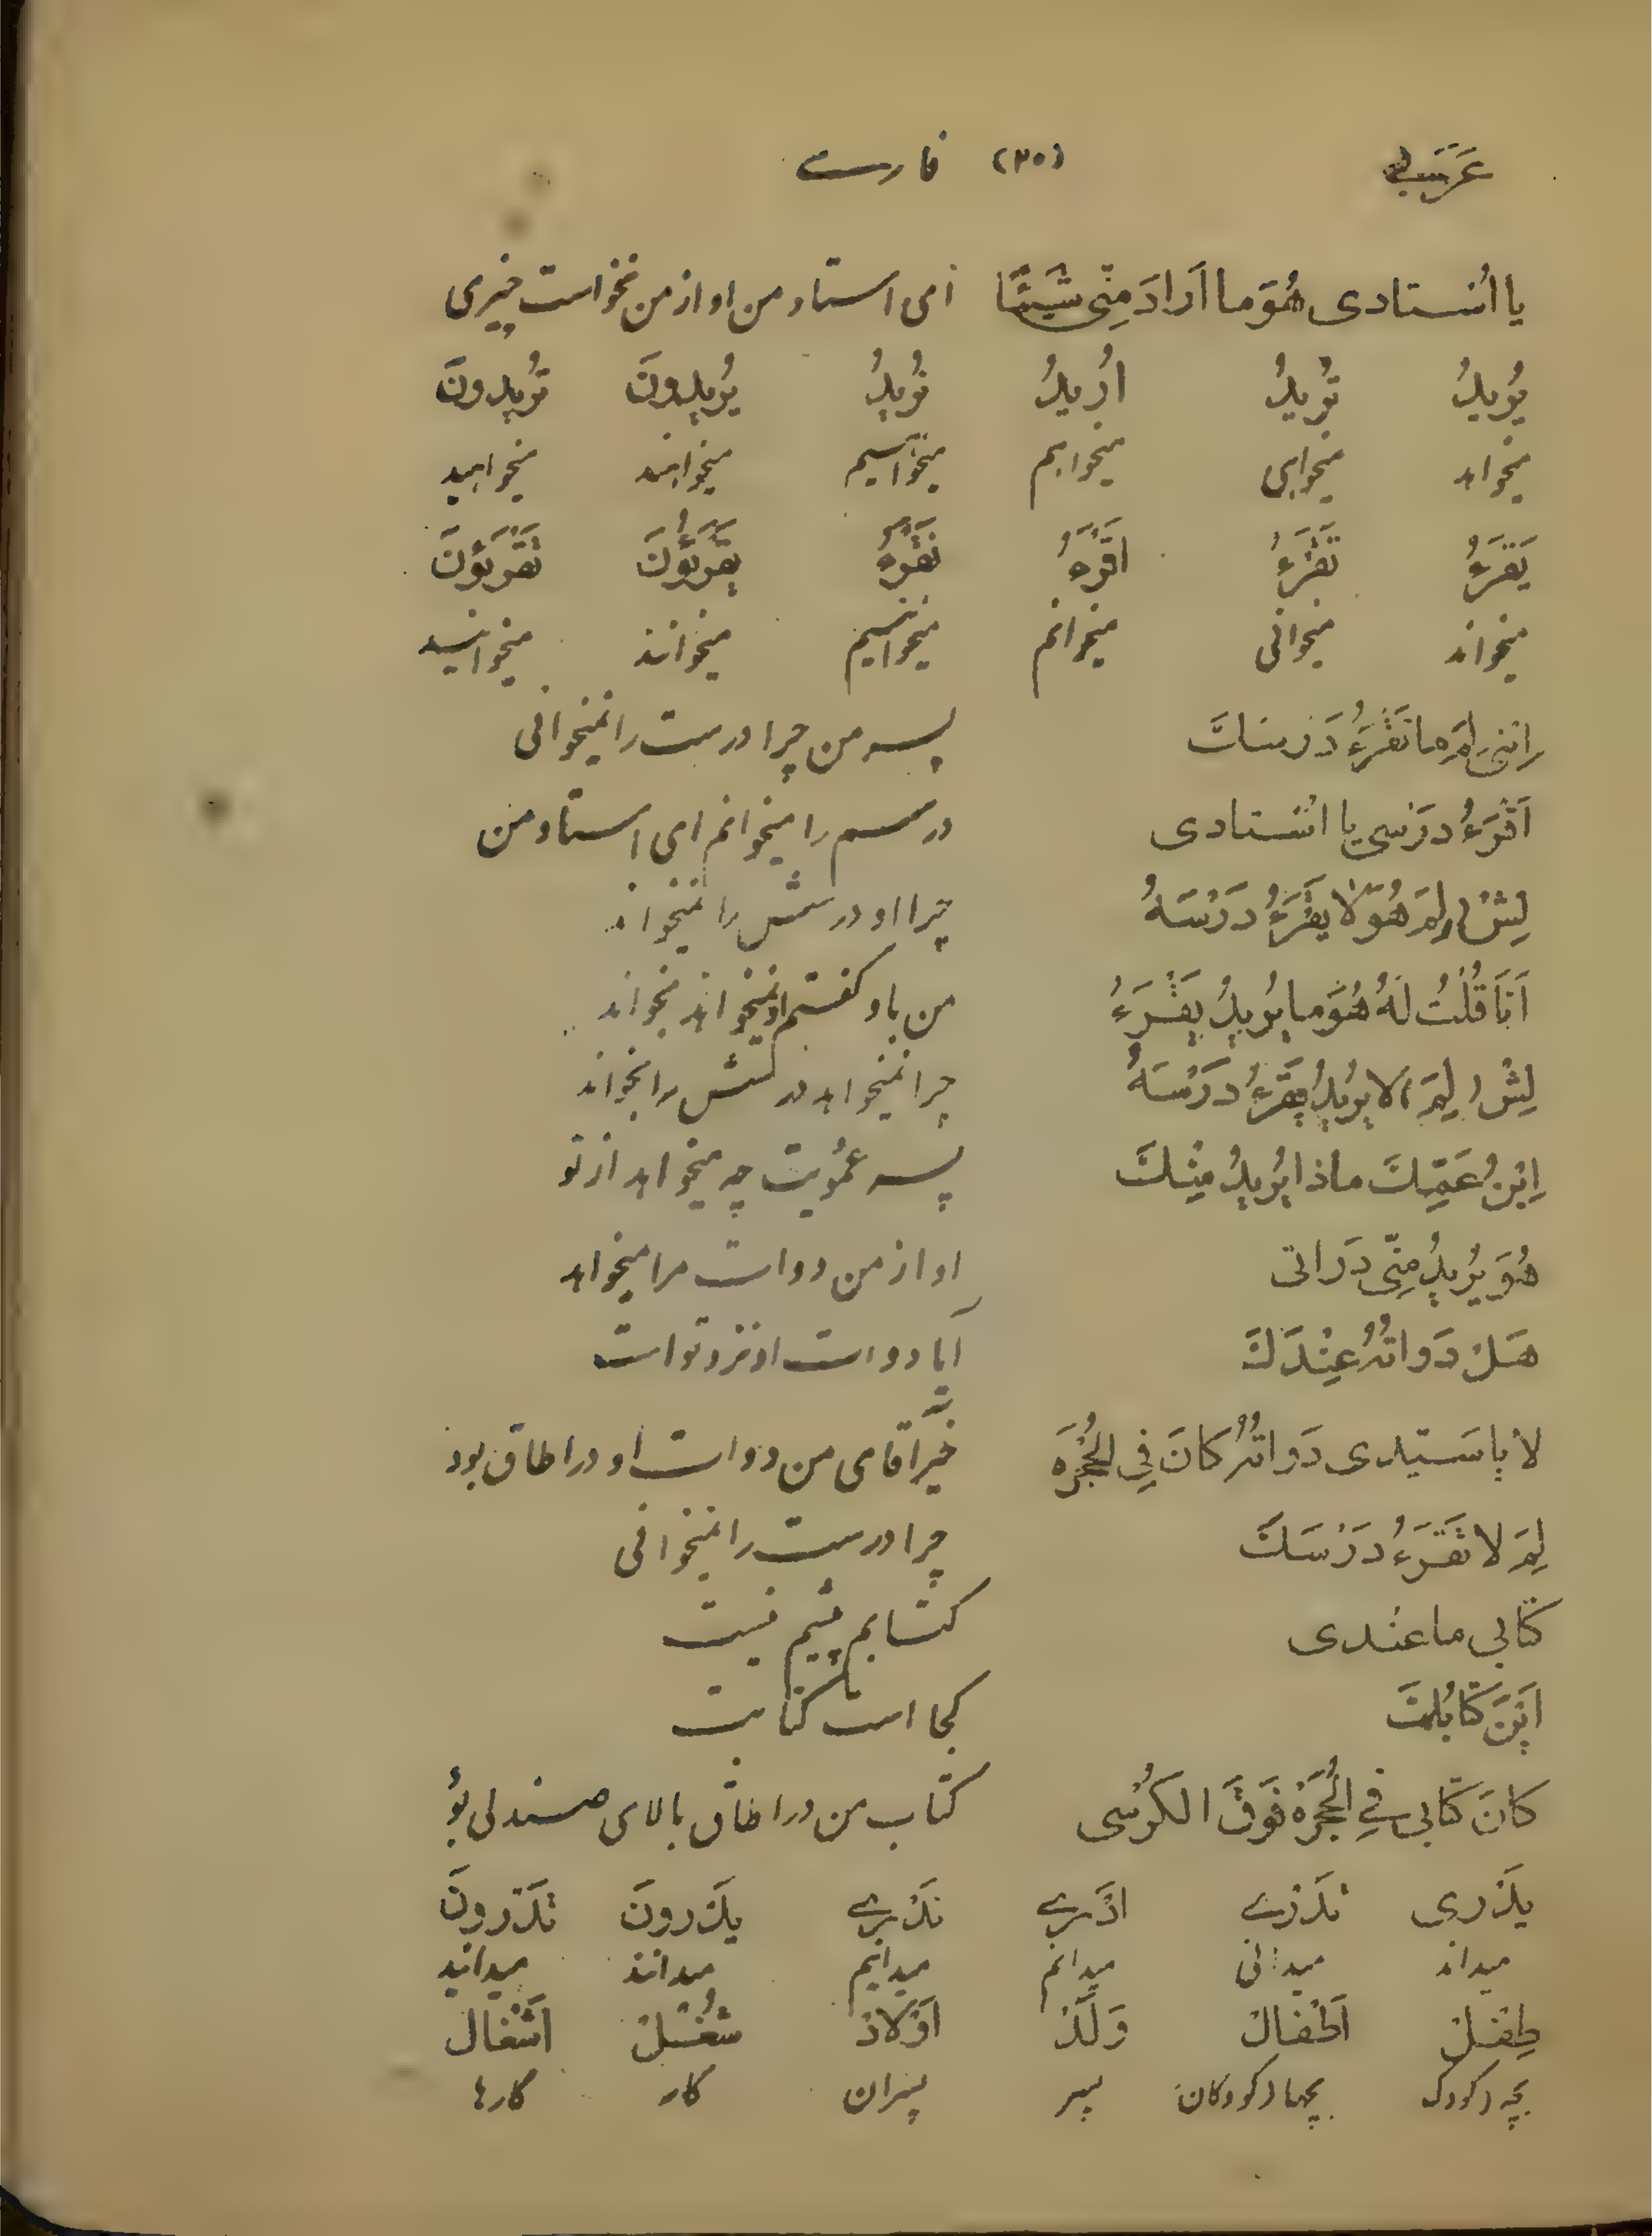 عَرَبی (۳۰) فارسے
یا اُستادی هُوَ ما اَرادَ مِنّی شَیئًا ای استاد من او از من نخواست چیزی
یُریدُ تُریدُ اُریدُ نُریدُ یُریدونَ تُریدونَ
میخواهد میخواهی میخواهم میخواهیم میخواهند میخواهید
یَقرَءُ تَقرَءُ اَقرَءُ نَقرَءُ یَقرَئونَ تَقرَئونَ
میخواند میخوانی میخوانم میخوانیم میخوانند میخوانید
اِبنی لِمَ ما تَقرَءُ دَرسَكَ پسر من چرا درست را نمیخوانی
اَقرَءُ دَرسی یا اُستادی درسم را میخوانم ای استاد من
لِشْ ( لِمَ هُوَ لا یَقرَءُ دَرْسَهُ چرا او درسش را نمیخواند
اَنَا قُلْتُ لَهُ هُوَ ما یُریدُ یَقْرَءُ من باو گفتم او نمیخواهد بخواند
لِشْ ( لِمَ ) لا یُریدُ یَقرَءُ دَرْسَهُ چرا نمیخواهد درسش را بخواند
اِبْنُ عَمِّكَ ماذا یُریدُ مِنْكَ پسر عمُویت چه میخواهد از تو
هُوَ یُریدُ مِنّی دَواتی او از من دوات مرا میخواهد
هَلْ دَواتُهُ عِنْدَكَ آیا دوات او نزد تو است
لا یا سَیّدی دَواتُهُ کانَ فِی الحُجْرَه خیر آقای من دوات او در اطاق بود
لِمَ لا تَقرَءُ دَرْسَكَ چرا درست را نمیخوانی
کتابی ما عندی کتابم پیشم نیست
اَیْنَ کتابُكَ کجا است کتابت
کانَ کتابی فِی الحُجْرَه فَوقَ الکُرْسی کتاب من در اطاق بالای صندلی بُو
یَدْری تَدْرے اَدْرے نَدْرے یَدْرونَ تَدْرونَ
میداند میدانی میدانم میدانیم میدانند میدانید
طِفْلْ اَطْفالْ وَلَدْ اَوْلادْ شُغْلْ اَشْغال
بچه (کودک بچها (کودکان) پسر پسران کار کارها